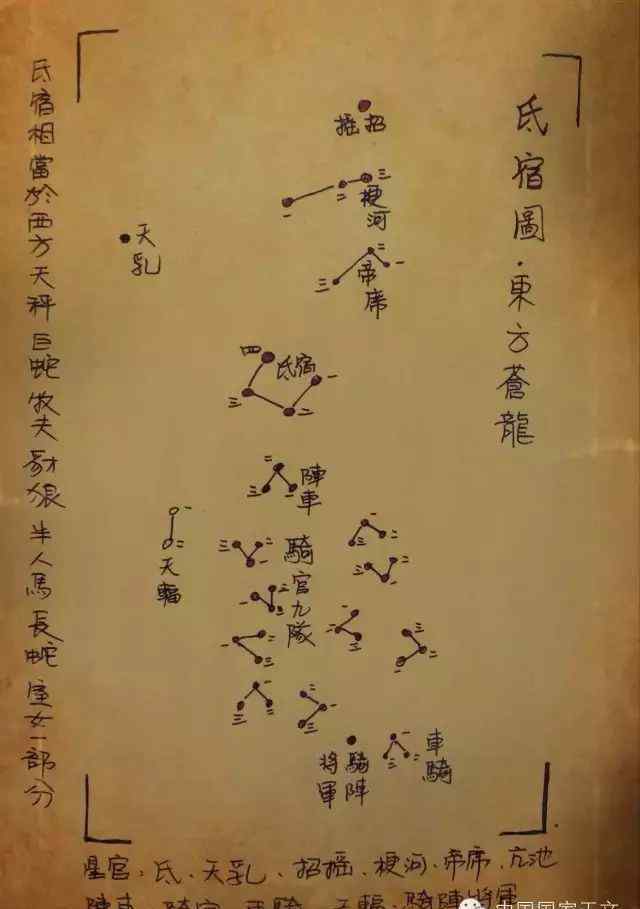 氐宿圖·東方蒼龍
招摇
三
二
梗河
一
天乳
二
一
帝席
三
四
氐宿
一
三
二
二
陣車
三
一
一
二
天輻
騎官九隊
車騎
騎陣
將軍
氐宿相當於西方天秤巨蛇牧夫豺狼半人馬長蛇室女一部分
星官：氐、天乳、招摇、梗河、帝席、亢池
陣車、騎官、車騎、天輻、騎陣將軍
中国国家天文